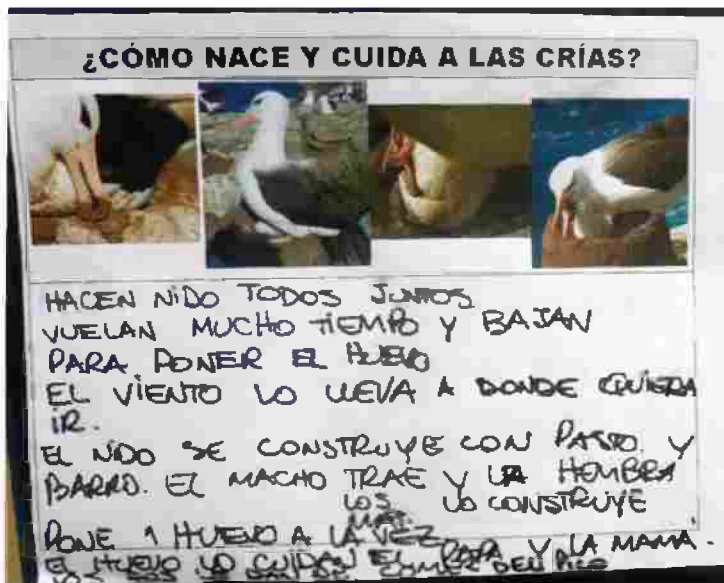 ¿CÓMO NACE Y CUIDA A LAS CRÍAS?
HACEN NIDO TODOS JUNTOS
VUELAN MUCHO TIEMPO Y BAJAN
PARA PONER EL HUEVO
EL VIENTO LO LLEVA A DONDE QUIERA
IR.
EL NIDO SE CONSTRUYE CON PASTO Y
BARRO. EL MACHO TRAE Y LA HEMBRA
LOS MAT. LO CONSTRUYE
PONE 1 HUEVO A LA VEZ
EL HUEVO LO CUIDAN EL PAPA Y LA MAMA.
LOS DOS LE DAN DE COMER DEL PICO